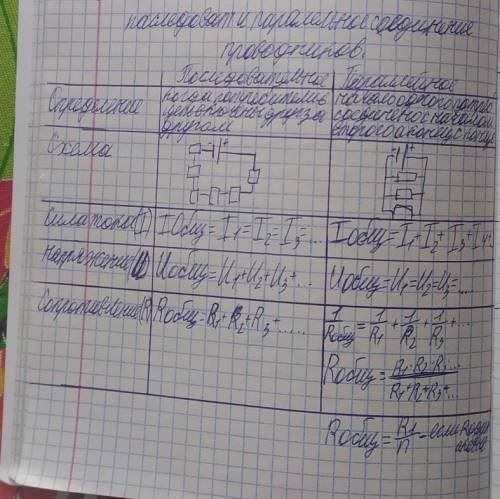 последоват и паралельное соединение
проводников.
Последовательное
Паралельное
Определение
когда потребители в
цепь друг за
другом
начало одного потреб
соединенос началом
второго а конец с конц
Схема
Сила тока (I)
Iобщ=I₁=I₂=I₃=...
Iобщ=I₁+I₂+I₃+I₄+
Напряжение (U)
Uобщ=U₁+U₂+U₃+...
Uобщ=U₁=U₂=U₃=...
Сопротивление (R)
Rобщ=R₁+R₂+R₃+.....
1/Rобщ=1/R₁+1/R₂+1/R₃+...
Rобщ=R₁·R₂·R₃.../R₁+R₂+R₃+...
Rобщ=R₁/n-если